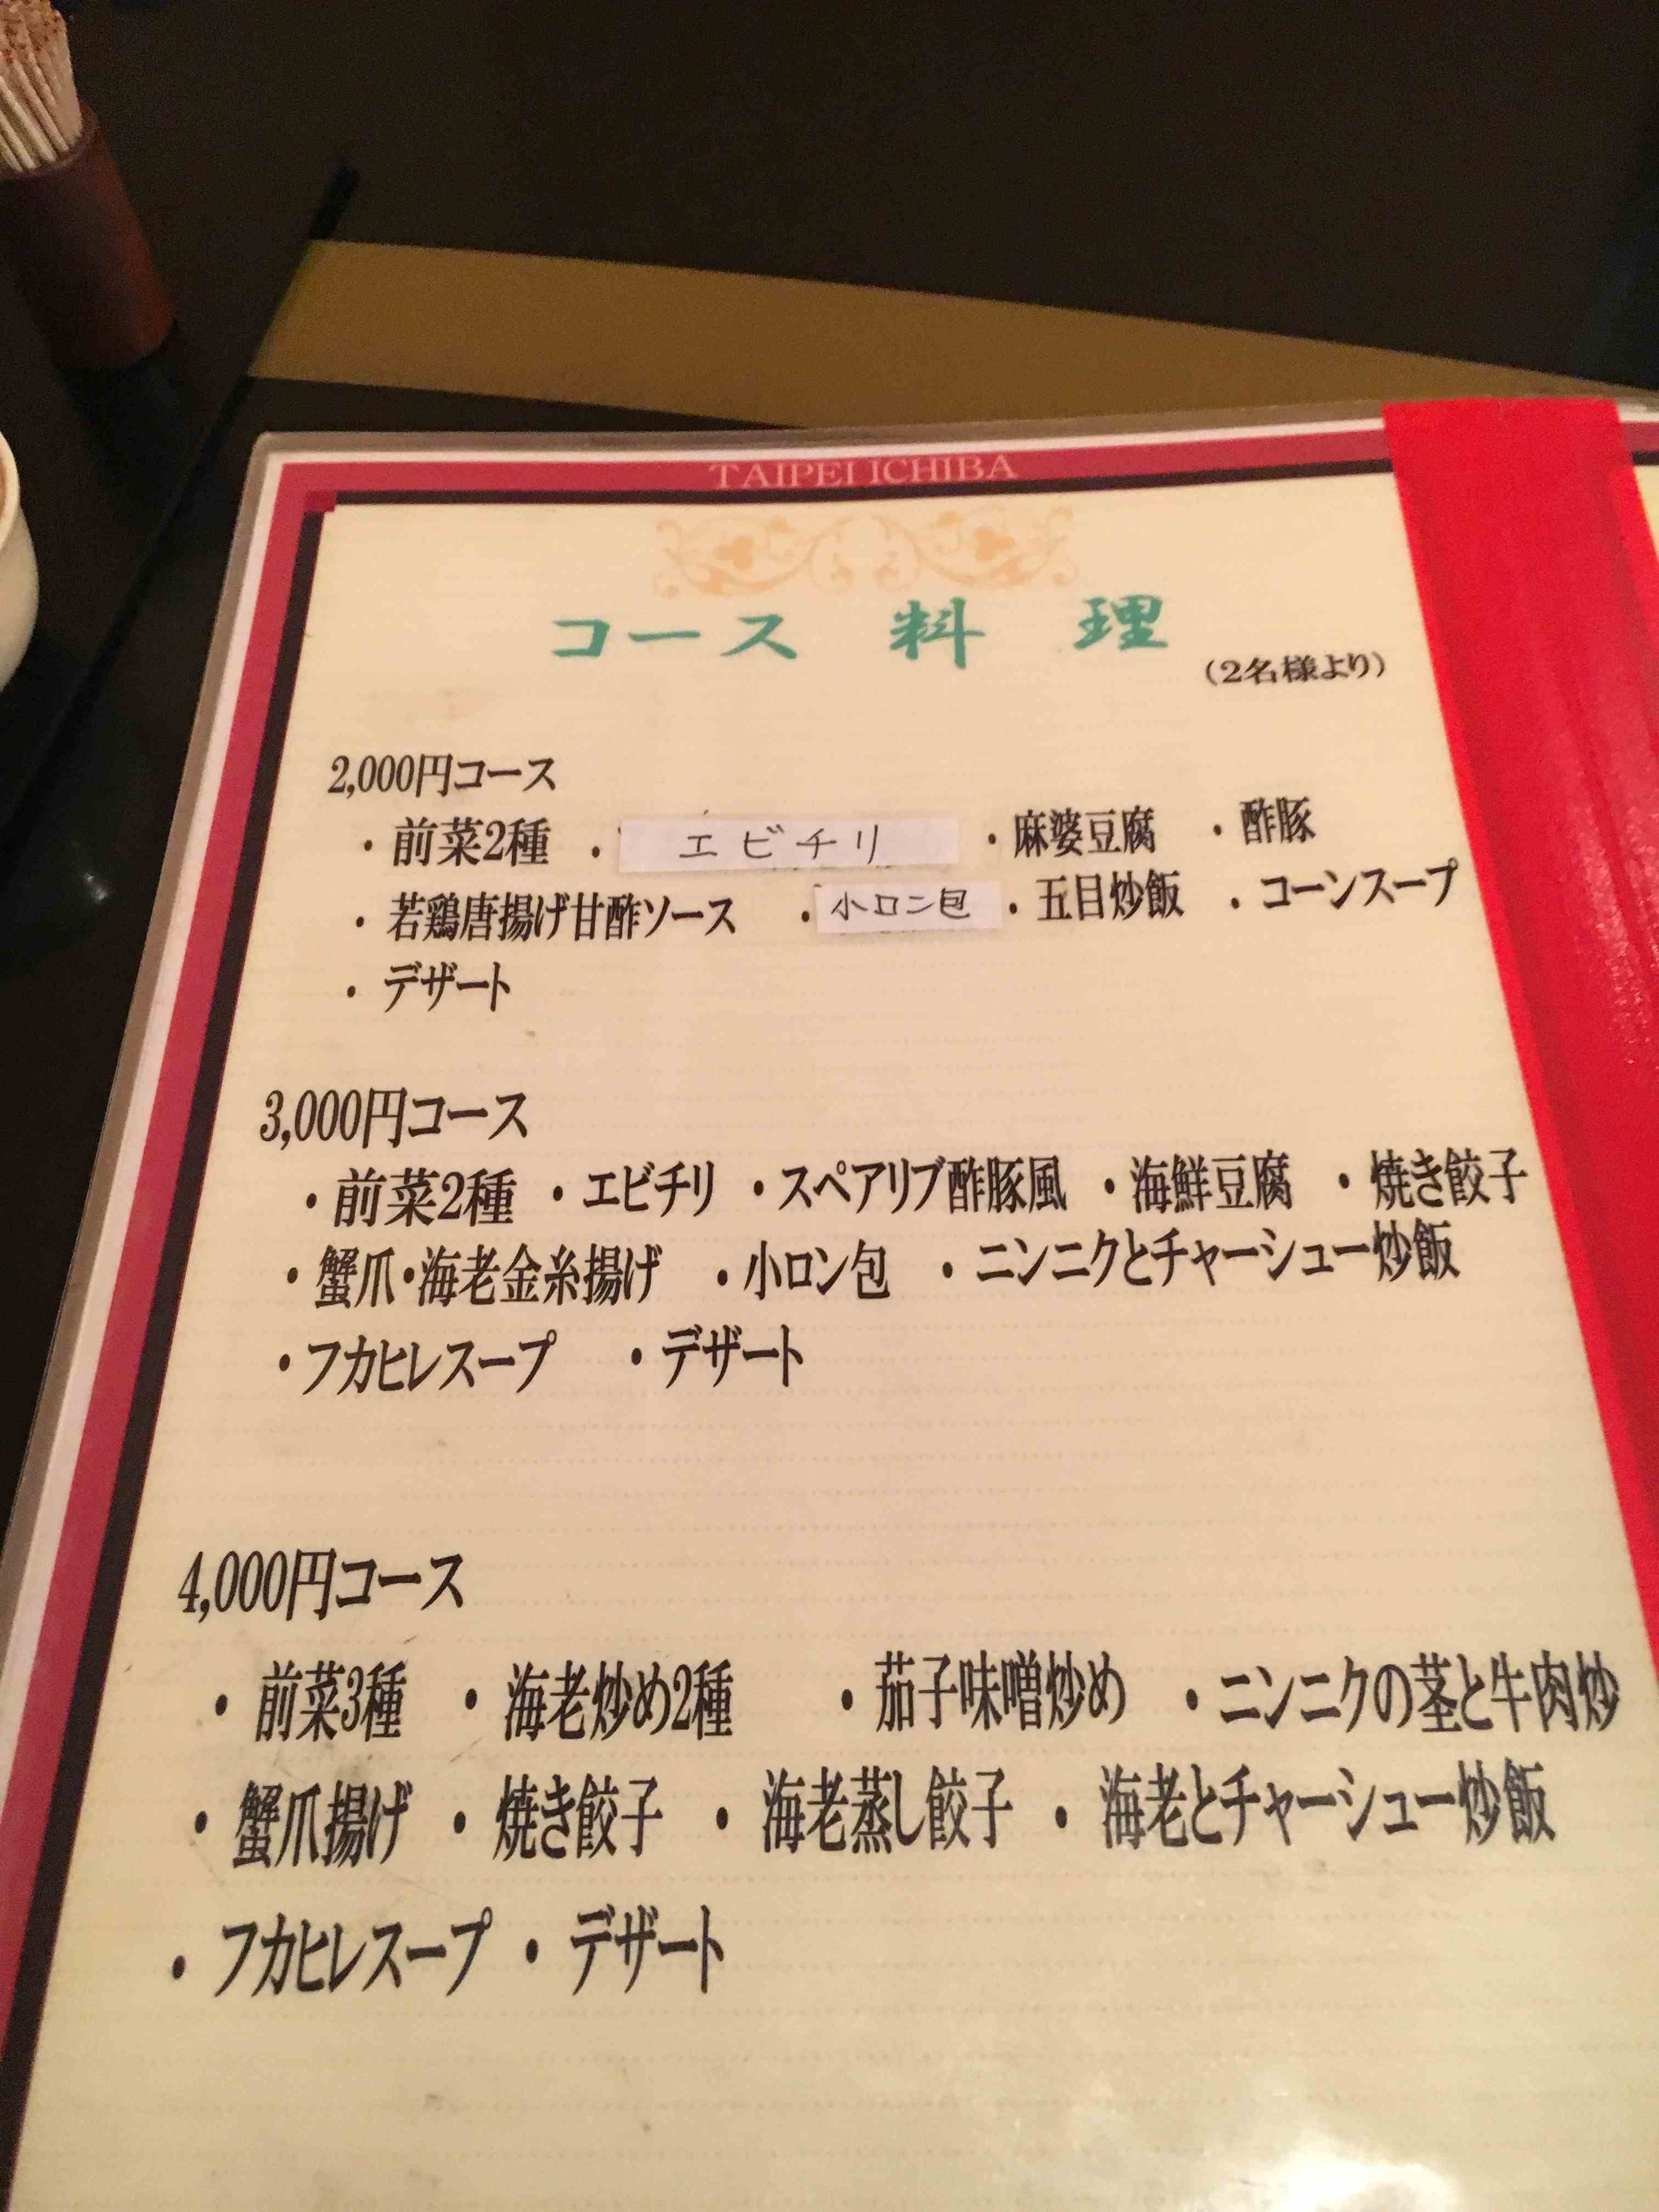 TAIPEI ICHIBA
コース 料 理
(2名様より)
2,000円コース
・前菜2種 ・エビチリ ・麻婆豆腐 ・酢豚
・若鶏唐揚げ甘酢ソース ・小ロン包 ・五目炒飯 ・コーンスープ
・デザート
3,000円コース
・前菜2種 ・エビチリ ・スペアリブ酢豚風 ・海鮮豆腐 ・焼き餃子
・蟹爪・海老金糸揚げ ・小ロン包 ・ニンニクとチャーシュー炒飯
・フカヒレスープ ・デザート
4,000円コース
・前菜3種 ・海老炒め2種 ・茄子味噌炒め ・ニンニクの茎と牛肉炒
・蟹爪揚げ ・焼き餃子 ・海老蒸し餃子 ・海老とチャーシュー炒飯
・フカヒレスープ ・デザート